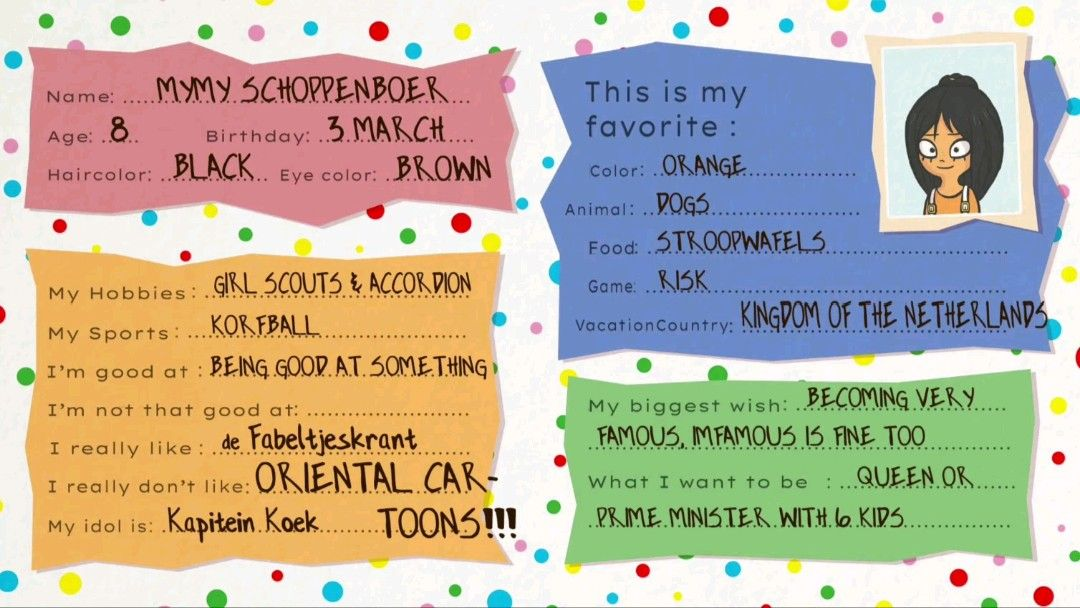 Name: MYMY SCHOPPENBOER
Age: 8 Birthday: 3 MARCH
Haircolor: BLACK Eye color: BROWN
My Hobbies: GIRL SCOUTS & ACCORDION
My Sports: KORFBALL
I'm good at: BEING GOOD AT SOMETHING
I'm not that good at:
I really like: de Fabeltjeskrant
I really don't like: ORIENTAL CAR-
My idol is: Kapitein Koek TOONS!!!
This is my
favorite:
Color: ORANGE
Animal: DOGS
Food: STROOPWAFELS
Game: RISK
VacationCountry: KINGDOM OF THE NETHERLANDS
My biggest wish: BECOMING VERY
FAMOUS, IMFAMOUS IS FINE TOO
What I want to be : QUEEN OR
PRIME MINISTER WITH 6 KIDS